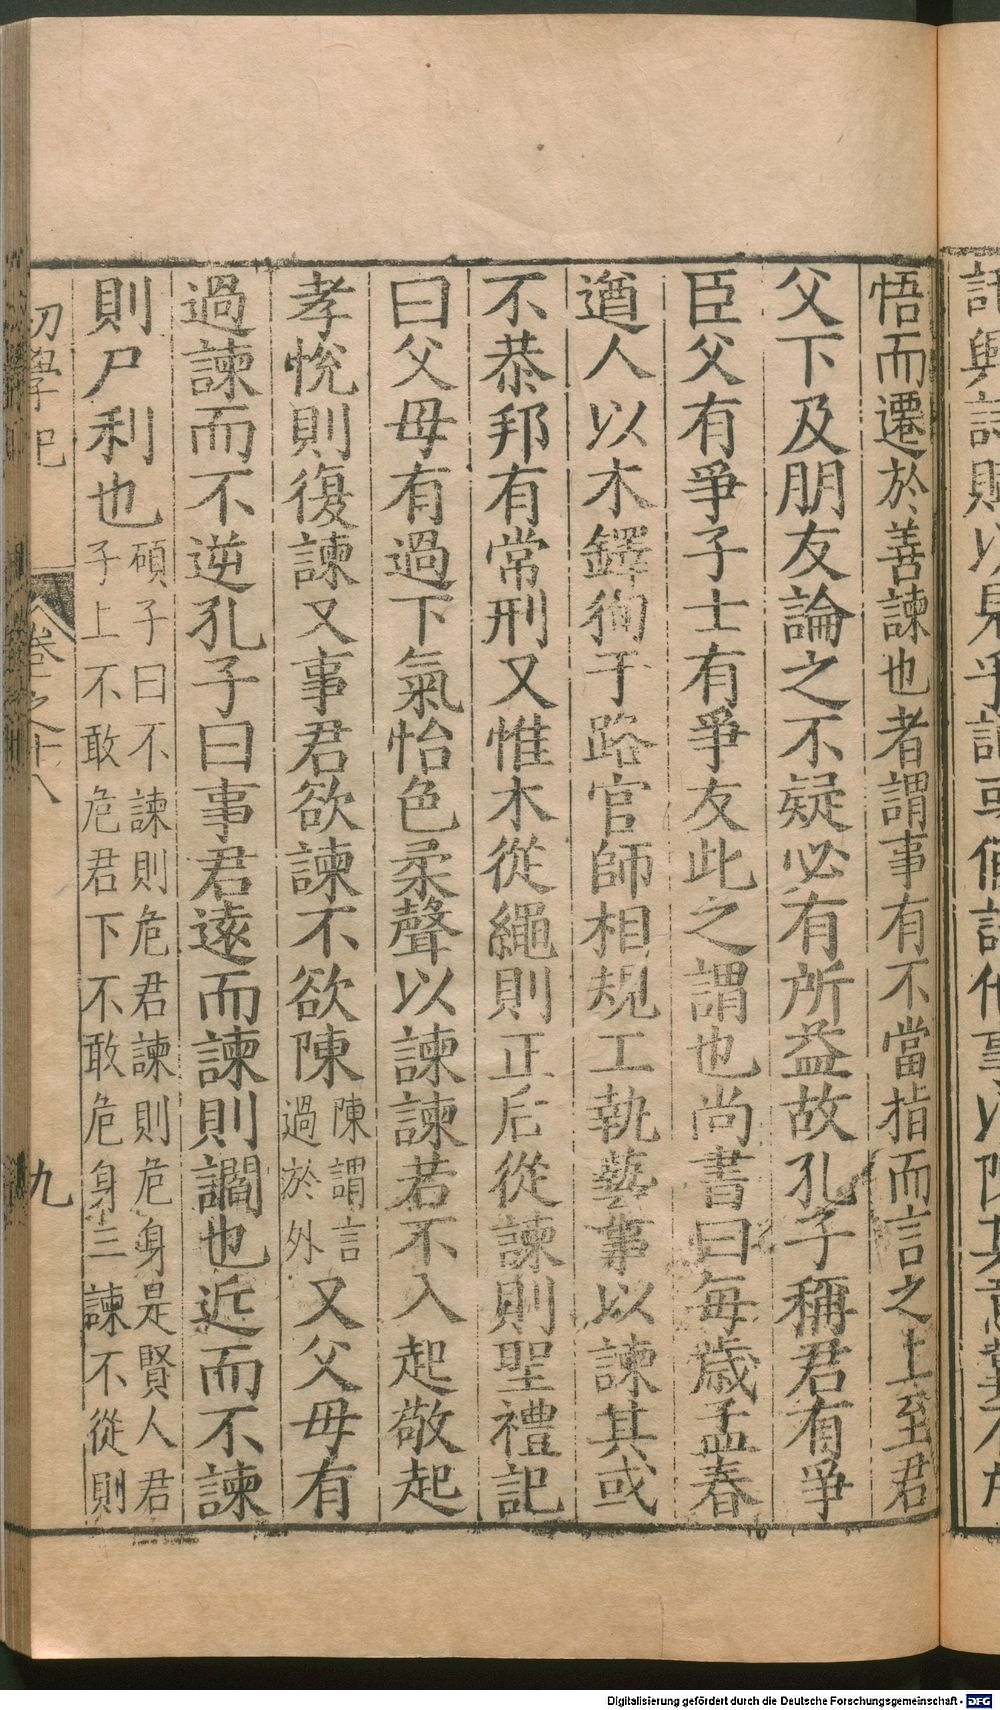 悟而遷於善諫也者謂事有不當指而言之上至君
父下及朋友論之不疑必有所益故孔子稱君有爭
臣父有爭子士有爭友此之謂也尚書曰每歲孟春
遒人以木鐸徇于路官師相規工執藝事以諫其或
不恭邦有常刑又惟木從繩則正后從諫則聖禮記
曰父母有過下氣怡色柔聲以諫諫若不入起敬起
孝悅則復諫又事君欲諫不欲陳陳謂言
過於外又父母有
過諫而不逆孔子曰事君遠而諫則讇也近而不諫
則尸利也碩子曰不諫則危君諫則危身是賢人君
子上不敢危君下不敢危身三諫不從則
初學記 卷之十八 九
Digitalisierung gefördert durch die Deutsche Forschungsgemeinschaft - DFG